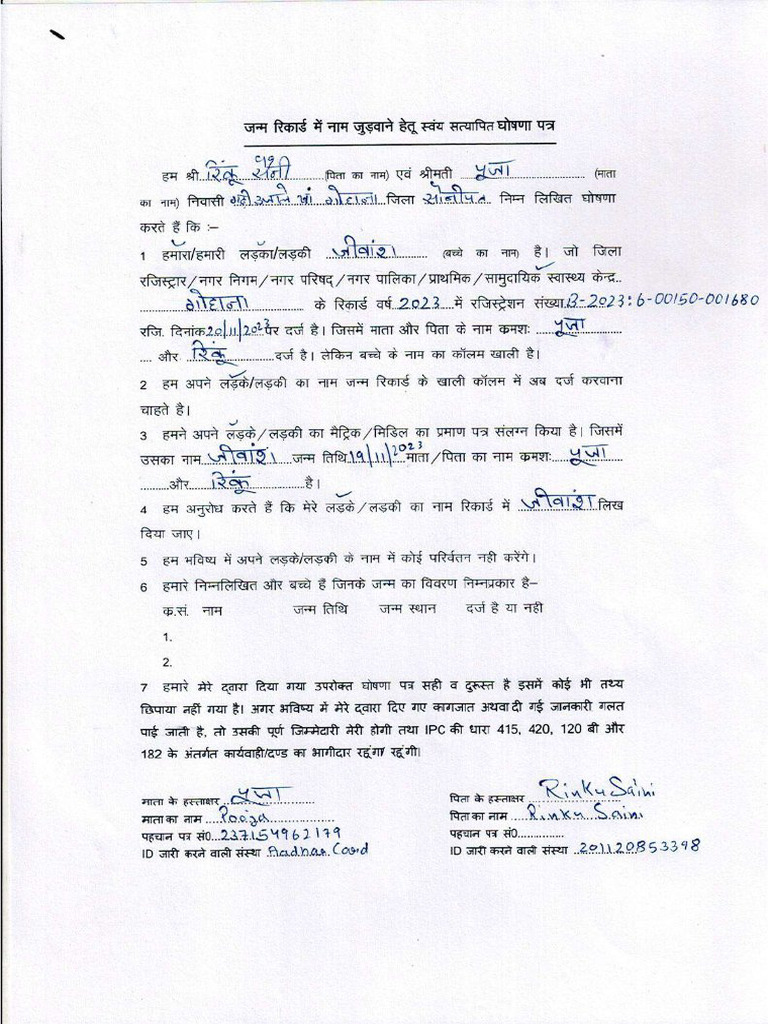 जन्म रिकार्ड में नाम जुड़वाने हेतू स्वंय सत्यापित घोषणा पत्र
हम श्री रिंकू सैनी (पिता का नाम) एवं श्रीमती पूजा (माता
का नाम) निवासी गढ़ी उजाले खां गोहाना जिला सोनीपत निम्न लिखित घोषणा
करते हैं कि :–
1 हमारा/हमारी लड़का/लड़की जीवांश (बच्चे का नाम) है। जो जिला
रजिस्ट्रार/नगर निगम/नगर परिषद्/नगर पालिका/प्राथमिक/सामुदायिक स्वास्थ्य केन्द्र
गोहाना के रिकार्ड वर्ष 2023 में रजिस्ट्रेशन संख्या B-2023:6-00150-001680
रजि. दिनांक 20/11/2023 पर दर्ज है। जिसमें माता और पिता के नाम क्रमशः पूजा
और रिंकू दर्ज है। लेकिन बच्चे के नाम का कॉलम खाली है।
2 हम अपने लड़के/लड़की का नाम जन्म रिकार्ड के खाली कॉलम में अब दर्ज करवाना
चाहते है।
3 हमने अपने लड़के/लड़की का मैट्रिक/मिडिल का प्रमाण पत्र संलग्न किया है। जिसमें
उसका नाम जीवांश जन्म तिथि 19/11/2023 माता/पिता का नाम क्रमशः पूजा
और रिंकू है।
4 हम अनुरोध करते हैं कि मेरे लड़के/लड़की का नाम रिकार्ड में जीवांश लिख
दिया जाए।
5 हम भविष्य में अपने लड़के/लड़की के नाम में कोई परिर्वतन नही करेंगे।
6 हमारे निम्नलिखित और बच्चे हैं जिनके जन्म का विवरण निम्नप्रकार है–
क.सं. नाम जन्म तिथि जन्म स्थान दर्ज है या नही
1.
2.
7 हमारे मेरे द्वारा दिया गया उपरोक्त घोषणा पत्र सही व दुरूस्त है इसमें कोई भी तथ्य
छिपाया नहीं गया है। अगर भविष्य में मेरे द्वारा दिए गए कागजात अथवा दी गई जानकारी गलत
पाई जाती है, तो उसकी पूर्ण जिम्मेदारी मेरी होगी तथा IPC की धारा 415, 420, 120 बी और
182 के अंतर्गत कार्यवाही/दण्ड का भागीदार रहूंगा/रहूंगी।
माता के हस्ताक्षर पूजा पिता के हस्ताक्षर Rinku Saini
माता का नाम Pooja पिता का नाम Rinku Saini
पहचान पत्र सं0 237154962179 पहचान पत्र सं0
ID जारी करने वाली संस्था Aadhar Card ID जारी करने वाली संस्था 201120853398